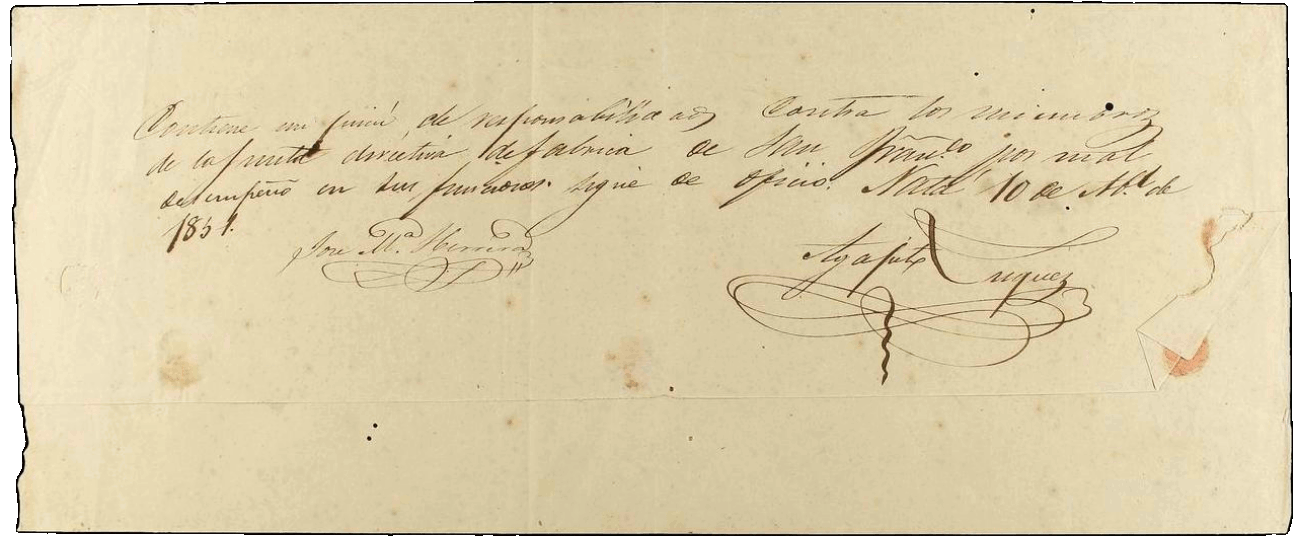 Contiene un juicio de responsabilidad, contra los miembros
de la junta directiva de fabrica de San Fran.co por mal
desempeño en sus funciones. sigue de oficio. Natá 10 de Ab.l de
1851.
José M.a Herrera
Agapito